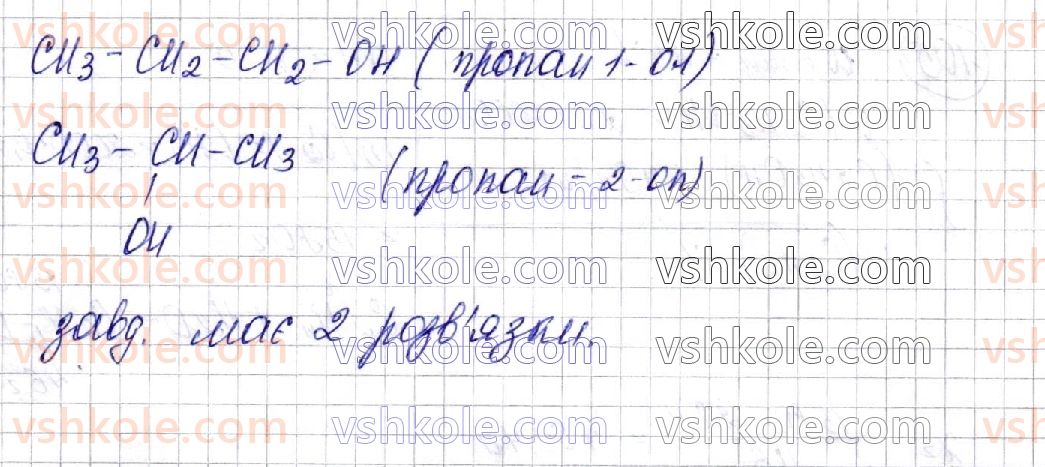 CH3 - CH2 - CH2 - OH (пропан 1-ол)
CH3 - CH - CH3 (пропан - 2 - ол)
OH
завд. має 2 розв'язки.
vshkole.com vshkole.com vshkole.com
vshkole.com vshkole.com vshkole.com
vshkole.com vshkole.com vshkole.com
vshkole.com vshkole.com vshkole.com
vshkole.com vshkole.com vshkole.com
vshkole.com vshkole.com vshkole.com